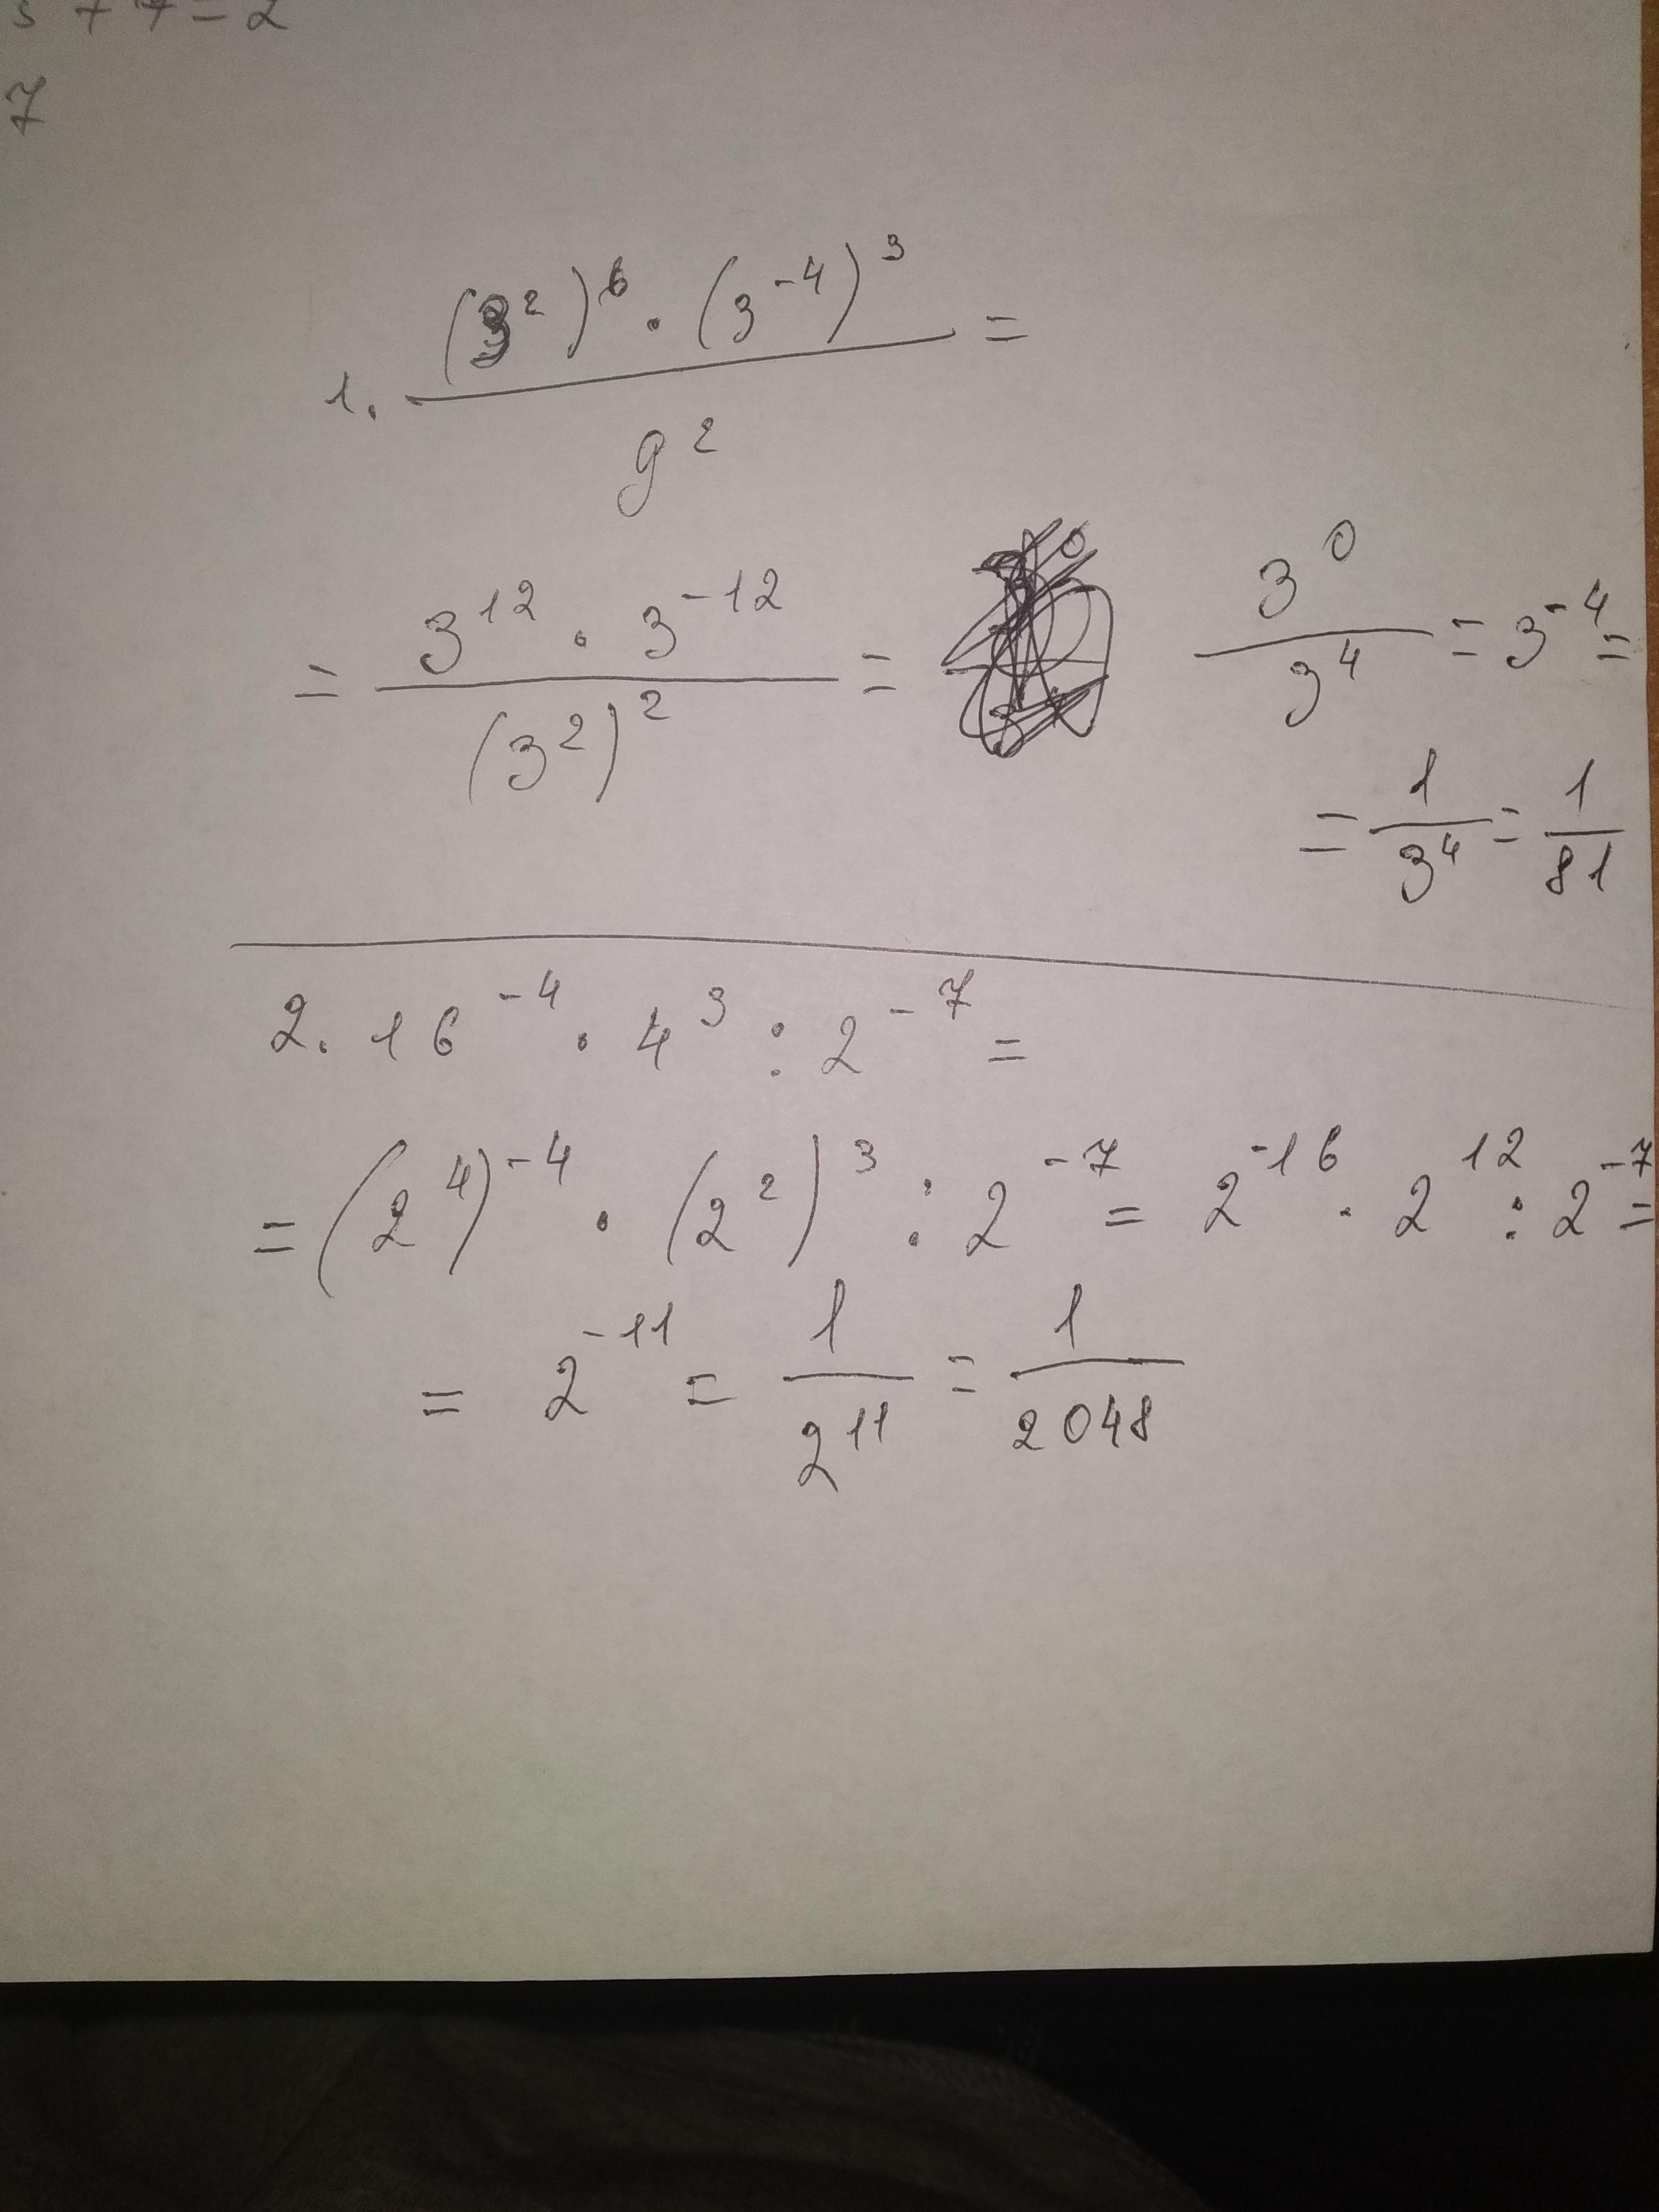 3 + 7 = 2
7
1. ((3²)⁶ · (3⁻⁴)³) / 9² =
= (3¹² · 3⁻¹²) / (3²)² = 3⁰ / 3⁴ = 3⁻⁴ =
= 1 / 3⁴ = 1 / 81
2. 16⁻⁴ · 4³ : 2⁻⁷ =
= (2⁴)⁻⁴ · (2²)³ : 2⁻⁷ = 2⁻¹⁶ · 2¹² : 2⁻⁷ =
= 2⁻¹¹ = 1 / 2¹¹ = 1 / 2048